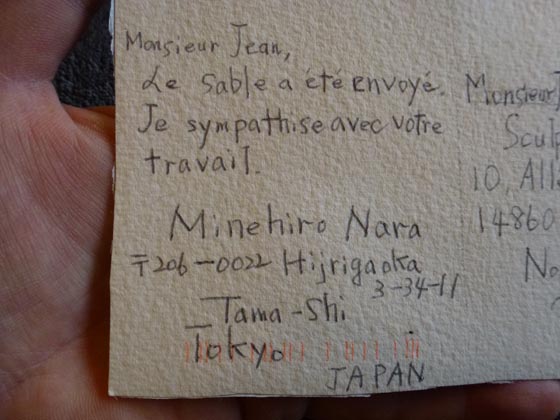 Monsieur Jean,
Le sable a été envoyé.
Je sympathise avec votre
travail.
Minehiro Nara
〒206-0022 Hijrigaoka
3-34-11
Tama-Shi
Tokyo
JAPAN
Monsieur
Sculp
10, All
14860
No